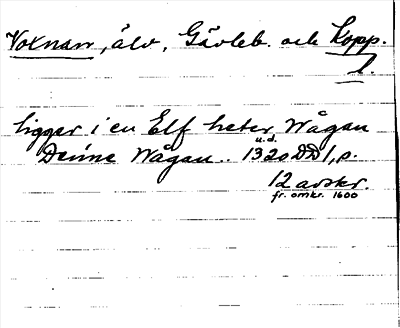 Voxnan, älv, Gävleb. och Kopp.
l.
ligger i en Elf heter Wågan
u.d.
Denne Wågan.. 1320 DD1, p.
12 avskr.
fr. omkr. 1600